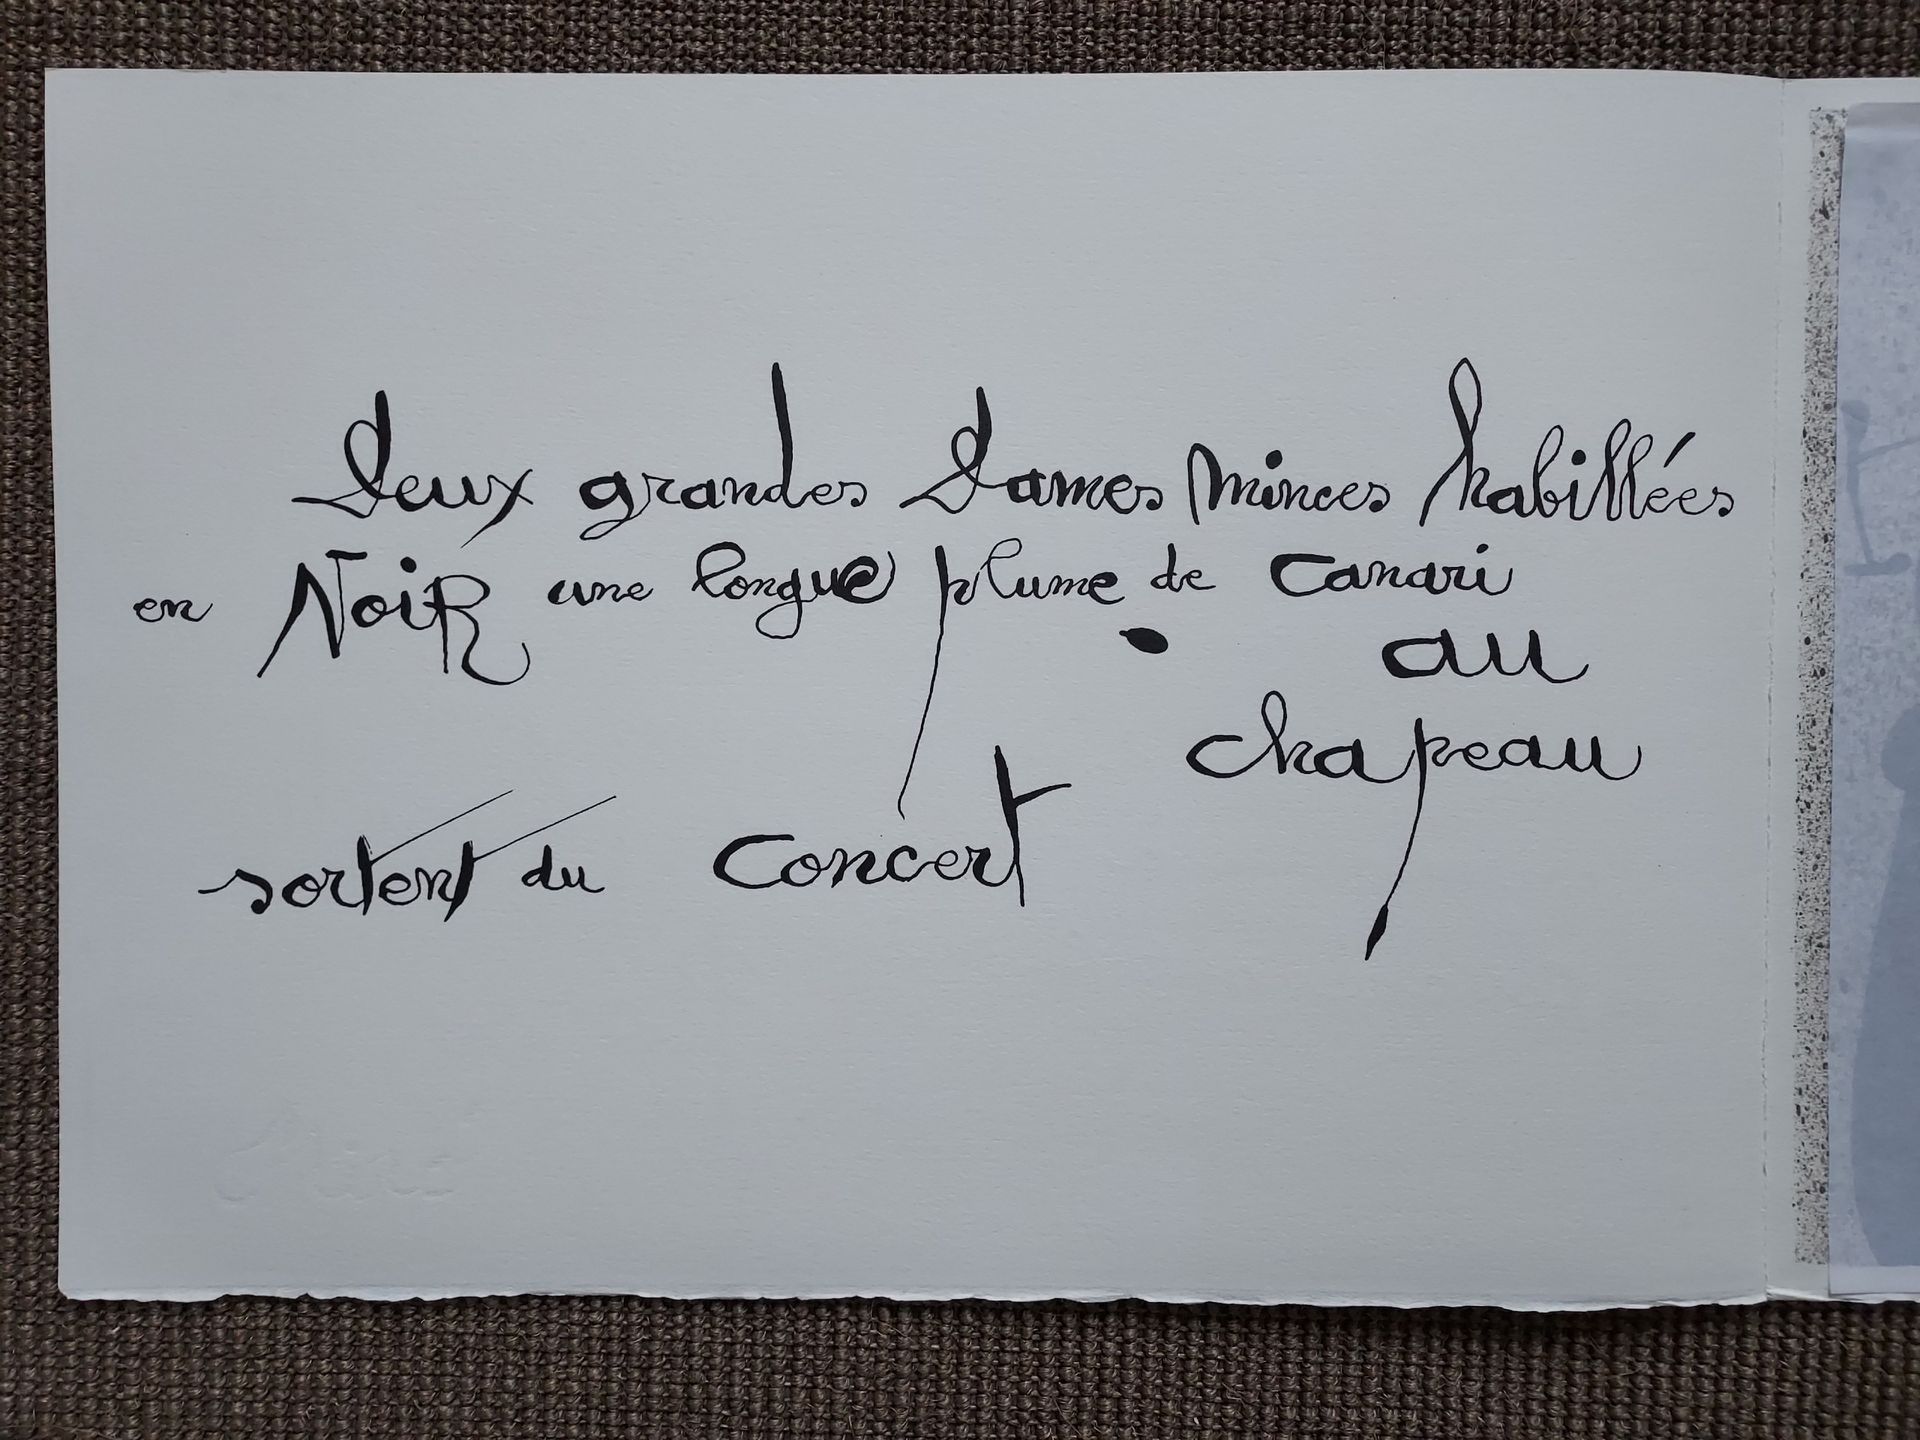 Deux grandes Dames Minces habillées
en NoiR une longue plume de Canari
au
chapeau
sortent du Concert